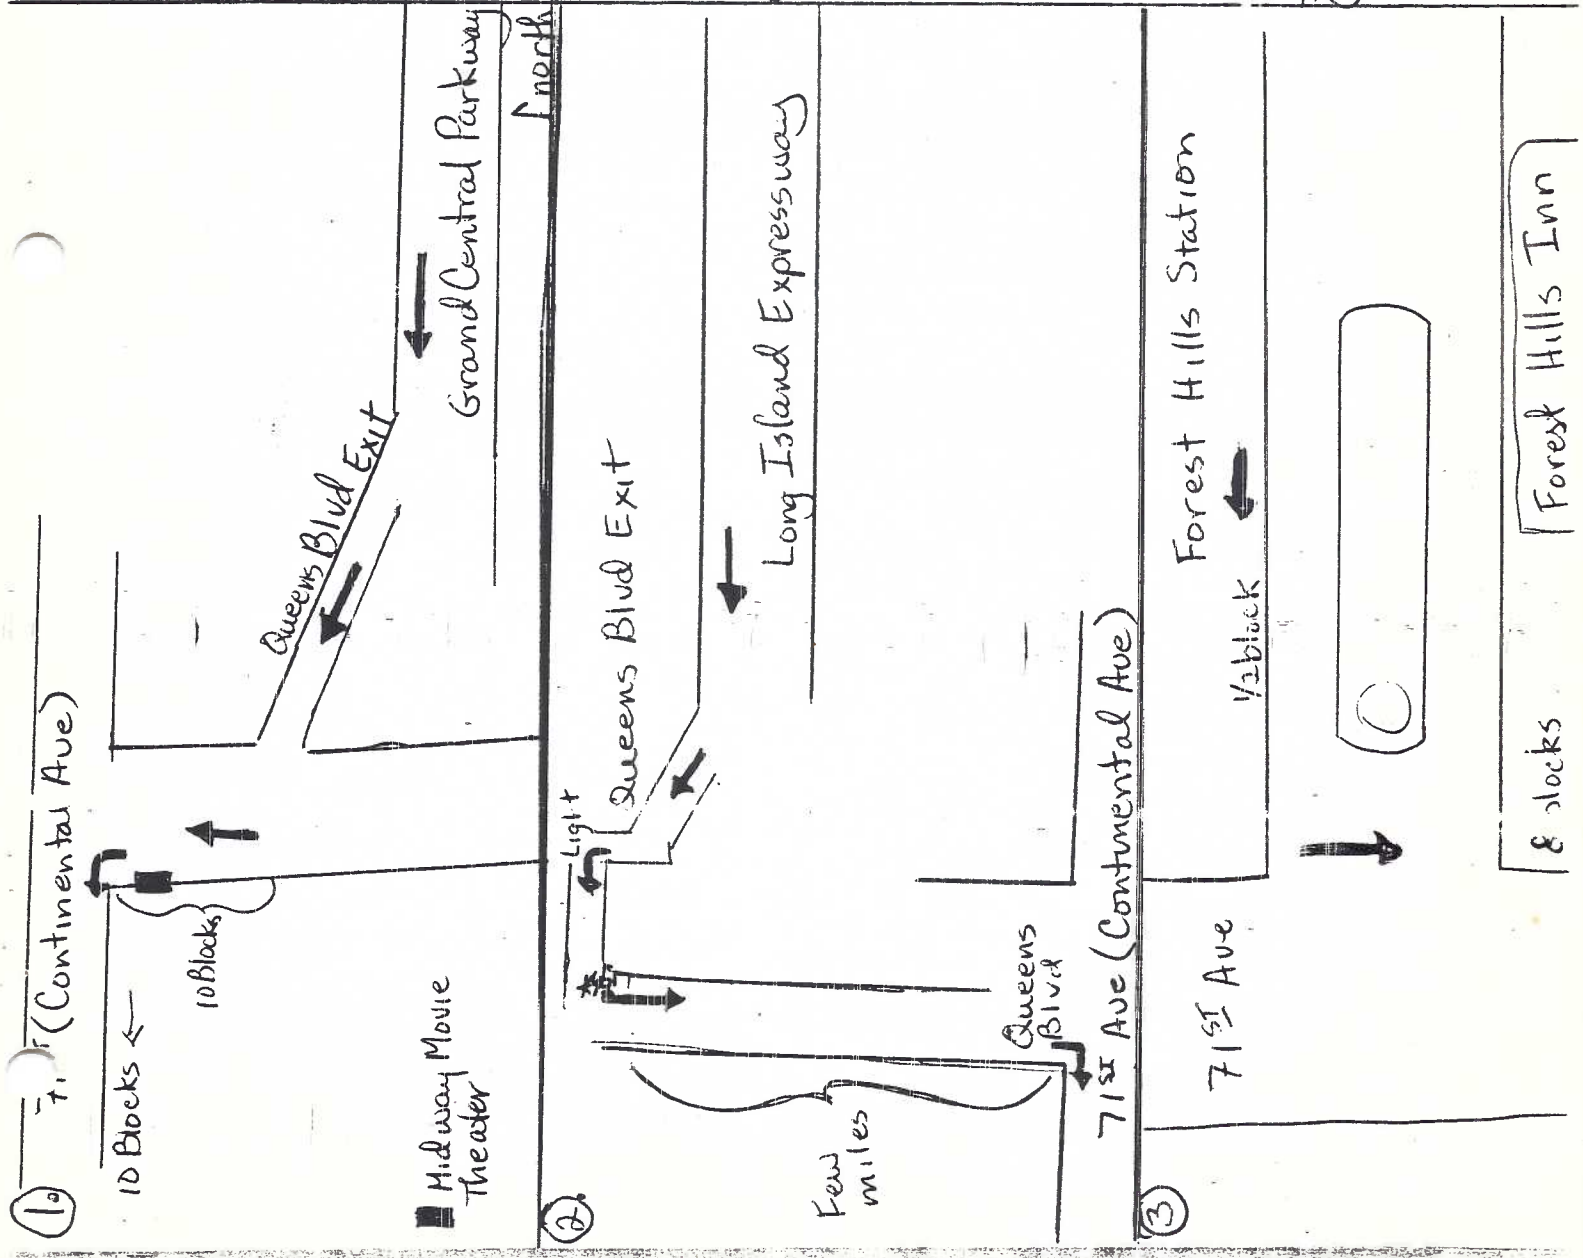 1.
(Continental Ave)
10 Blocks ←
10 Blocks
Midway Movie
Theater
Queens Blvd Exit
Grand Central Parkway
north
2.
Light
Queens Blvd Exit
Long Island Expressway
Few
miles
Queens
Blvd
71ST Ave (Continental Ave)
3
Forest Hills Station
1/2 block
71ST Ave
8 blocks
Forest Hills Inn